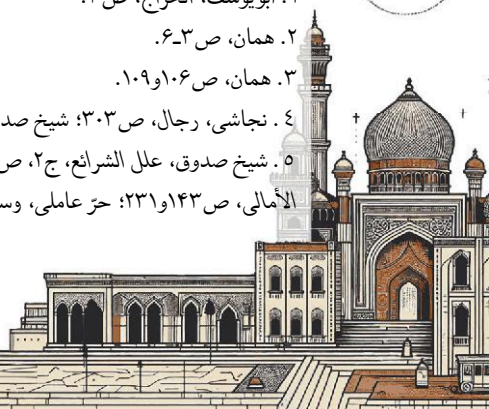 ۱. ابویوسف، الخراج، ص۳.
۲. همان، ص۳ـ۶.
۳. همان، ص۱۰۶و۱۰۹.
٤. نجاشی، رجال، ص۳۰۳؛ شیخ صد
٥. شیخ صدوق، علل الشرائع، ج۲، ص
الأمالی، ص۱۴۳و۲۳۱؛ حرّ عاملی، وس